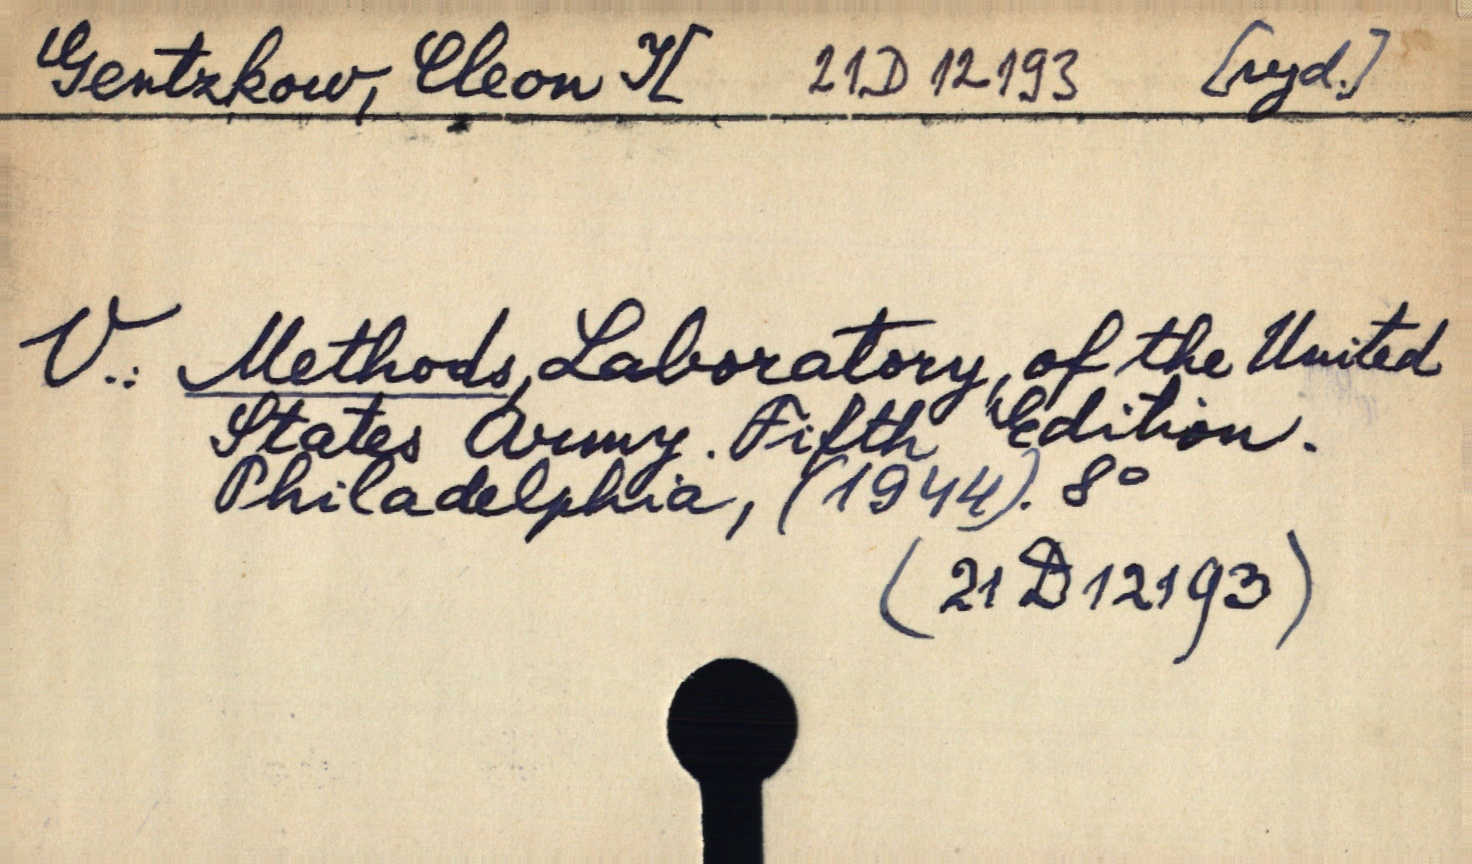 Gentzkow, Cleon J[ 21D 12193 [red.]
V.: Methods, Laboratory, of the United
States Army. Fifth Edition.
Philadelphia, (1944). 8°
(21D12193)